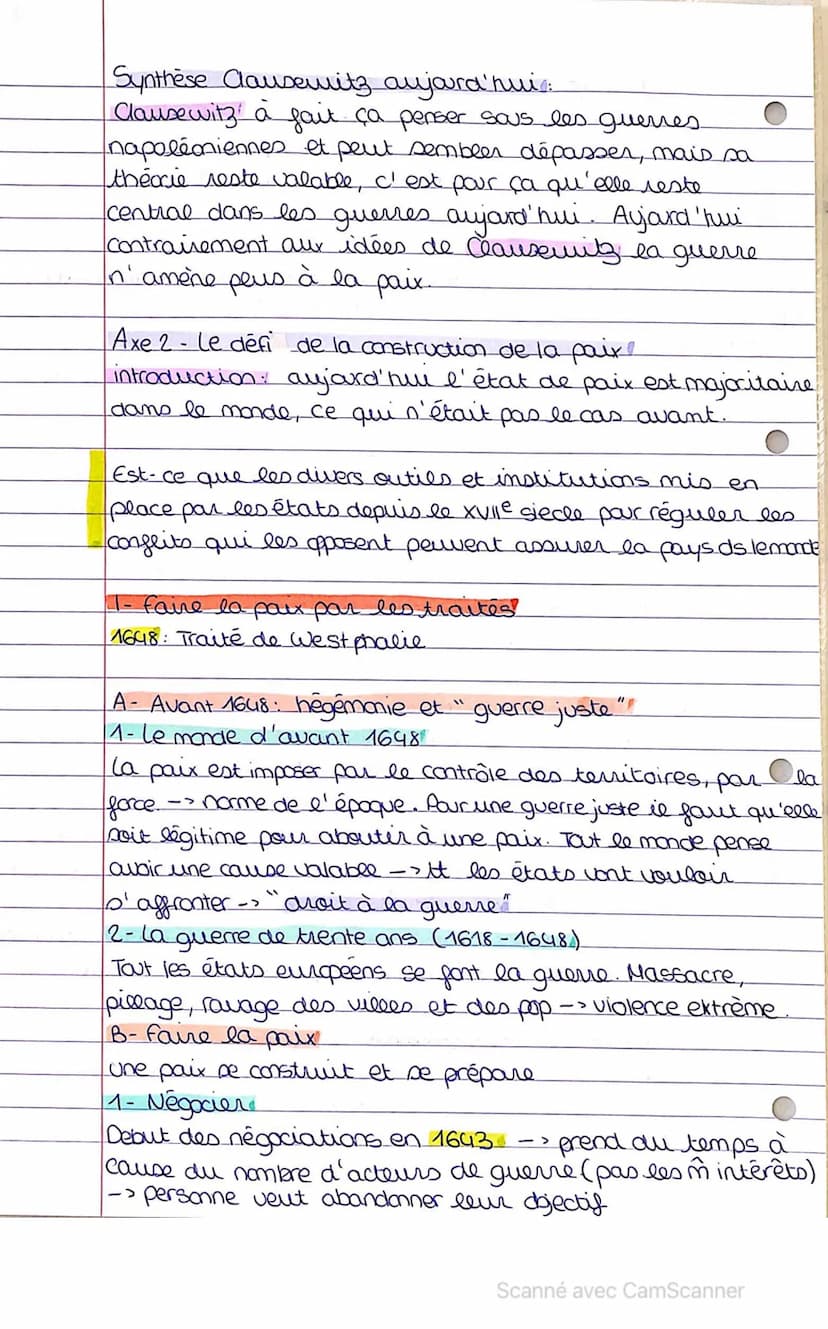 Synthèse Clausewitz aujourd'hui :
Clausewitz à fait ça penser sous les guerres
napoléoniennes et peut sembler dépasser, mais sa
théorie reste valable, c'est pour ça qu'elle reste
central dans les guerres aujourd'hui. Aujard'hui
contrairement aux idées de Clausewitz la guerre
n'amène plus à la paix.
Axe 2 - Le défi de la construction de la paix
introduction : aujourd'hui l'état de paix est majoritaire
dans le monde, ce qui n'était pas le cas avant.
Est-ce que les divers outils et institutions mis en
place par les états depuis le XVIIe siecle pour réguler les
conflits qui les opposent peuvent assurer la pays ds le monde
I- Faire la paix par les traités
1648 : Traité de Westphalie
A- Avant 1648 : hégémonie et "guerre juste"
1- Le monde d'avant 1648
La paix est imposer par le contrôle des territoires, par la
force. -> norme de l'époque. Pour une guerre juste il faut qu'elle
soit légitime pour aboutir à une paix. Tout le monde pense
avoir une cause valable -> tt les états vont vouloir
s'affronter -> "droit à la guerre"
2- La guerre de trente ans (1618 - 1648)
Tout les états européens se font la guerre. Massacre,
pillage, ravage des villes et des pop -> violence extrème.
B- Faire la paix
Une paix se construit et se prépare
1- Négocier
Debut des négociations en 1643 -> prend du temps à
cause du nombre d'acteurs de guerre (pas les m̂ intérêts)
-> personne veut abandonner leur objectif
Scanné avec CamScanner